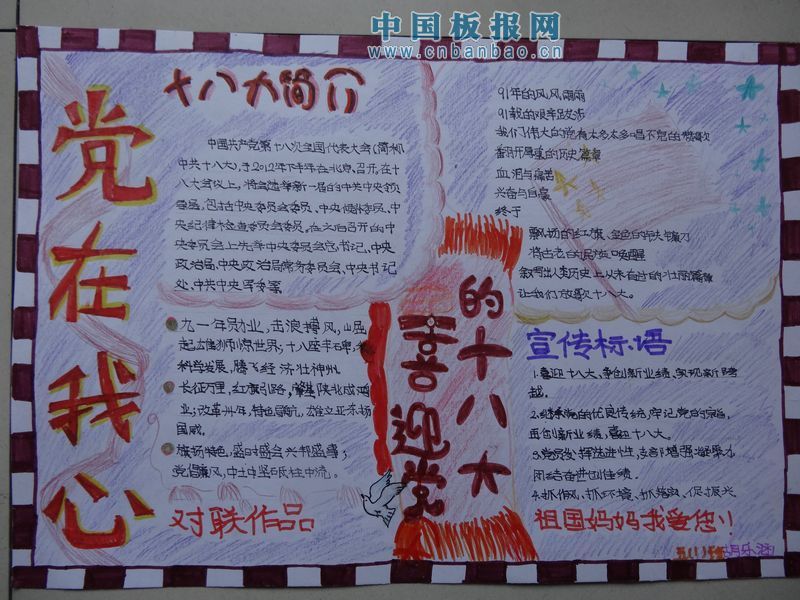 中国板报网
www.cnbanbao.cn
党在我心
十八大简介
中国共产党第十八次全国代表大会(简称
中共十八大),于2012年下半年在北京召开,在十
八大会议上,将会选举新一届的中共中央领
导层,包括中央委员会委员、中央候补委员、中
央纪律检查委员会委员,在之后召开的中
央委员会上先选举中央委员会总书记、中央
政治局、中央政治局常务委员会、中央书记
处、中共中央军委
九一年勋业,击浪搏风,崛
起雄狮惊世界;十八座丰碑,
科学发展,腾飞经济壮神州
长征万里,红旗引路,陕北成鸿
业;改革卅年,特色领航,雄立亚东扬
国威
旗扬特色,盛时盛会兴邦盛事;
党倡廉风,中土中坚砥柱中流。
对联作品
喜迎党
的十八大
91年的风风雨雨
91载的艰辛跋涉
我们伟大的党有太多太多唱不完的赞歌
翻开厚重的历史篇章
血泪与痛苦
兴奋与自豪
终于
飘扬的红旗、金色的伟大镰刀
将古老的民族唤醒
叙写出人类历史上从未有过的壮丽篇章
让我们放歌十八大。
宣传标语
1.喜迎十八大、争创新业绩、实现新跨
越。
2.继承党的优良传统,牢记党的宗旨,
再创新业绩,喜迎十八大。
3.党员发挥先进性,支部增强凝聚力
团结奋进创佳绩。
4.抓作风、抓环境、抓落实、促振兴
祖国妈妈我爱您!!